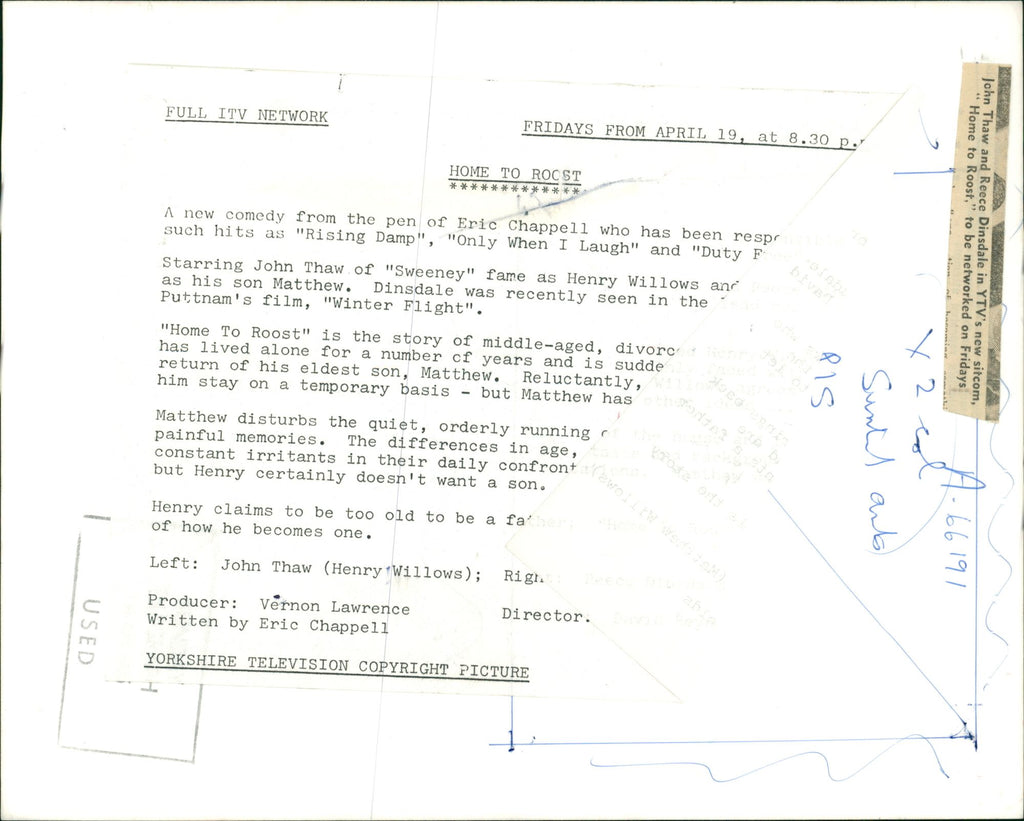 FULL ITV NETWORK
FRIDAYS FROM APRIL 19, at 8.30 p.
HOME TO ROOST
*************
A new comedy from the pen of Eric Chappell who has been resp
such hits as "Rising Damp", "Only When I Laugh" and "Duty F
Starring John Thaw of "Sweeney" fame as Henry Willows and
as his son Matthew. Dinsdale was recently seen in the
Puttnam's film, "Winter Flight".
"Home To Roost" is the story of middle-aged, divorc
has lived alone for a number of years and is sudde
return of his eldest son, Matthew. Reluctantly,
him stay on a temporary basis - but Matthew has
Matthew disturbs the quiet, orderly running
painful memories. The differences in age,
constant irritants in their daily confront
but Henry certainly doesn't want a son.
Henry claims to be too old to be a fa
of how he becomes one.
Left: John Thaw (Henry Willows); Righ
Producer: Vernon Lawrence
Director.
Written by Eric Chappell
YORKSHIRE TELEVISION COPYRIGHT PICTURE
USED
John Thaw and Reece Dinsdale in YTV's new sitcom,
"Home to Roost," to be networked on Fridays
X 2 col
A.66191
P15